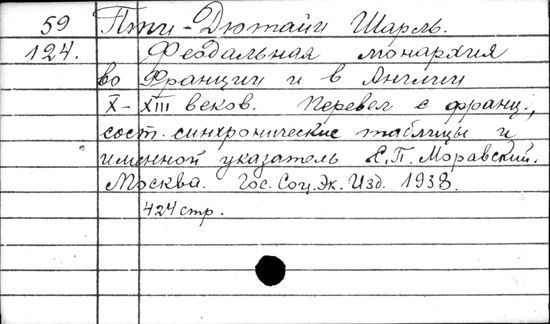 59 Пти-Дютайи Шарль.
124. Феодальная монархия
во Франции и в Англии
X-XIII веков. Перевел с франц.,
сост. синхронические таблицы и
именной указатель С.П. Моравский.
Москва. Гос. Соц. Эк. Изд. 1938.
424 стр.